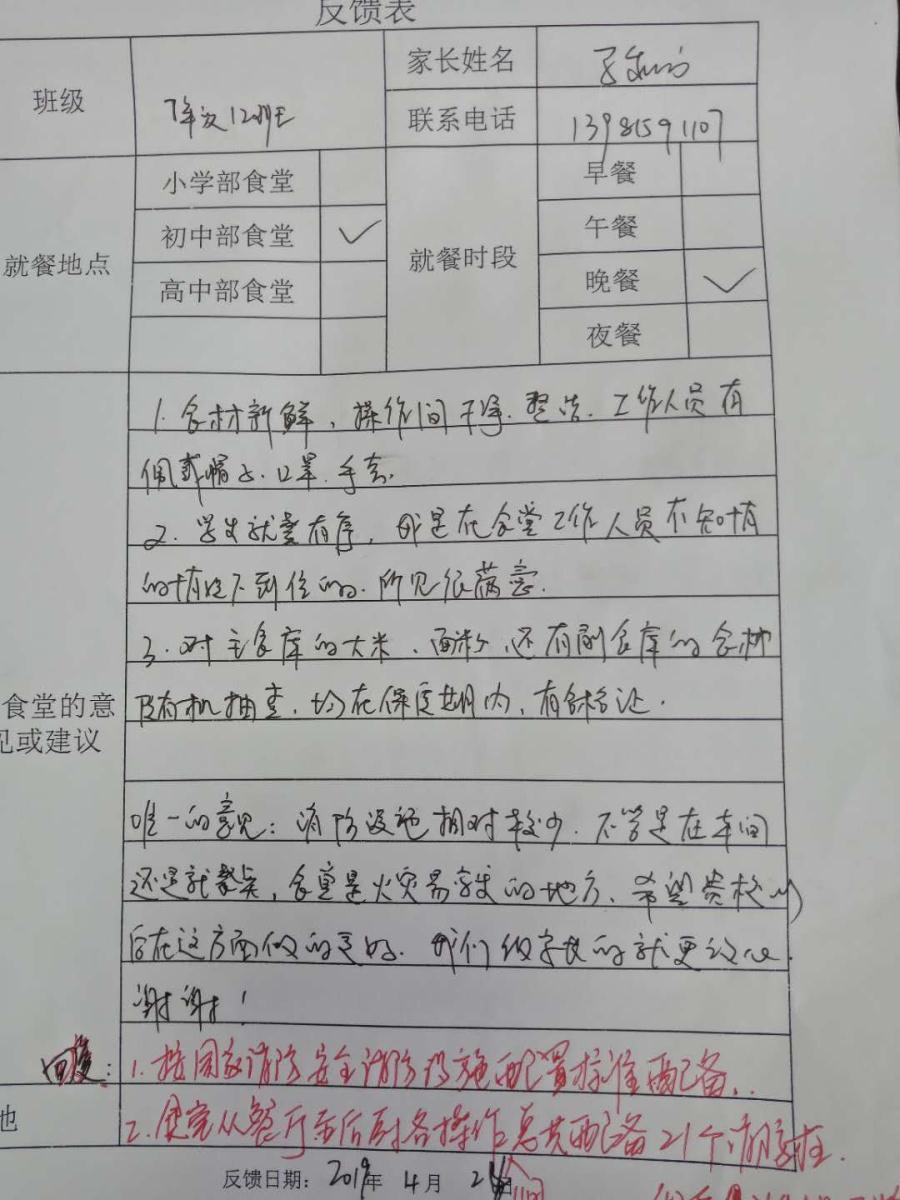 反馈表
班级 7年级12班 家长姓名
联系电话 13981591107
就餐地点 小学部食堂 就餐时段 早餐
初中部食堂 ✓ 午餐
高中部食堂 晚餐 ✓
夜餐
食堂的意
见或建议
1. 食材新鲜，操作间干净.整洁.工作人员有
佩戴帽子.口罩.手套.
2. 学生就餐有序，我是在食堂工作人员不知情
的情况下到位的.所见很满意.
3. 对主食库的大米、面粉、还有副食库的食材
随机抽查.均在保质期内，有合格证.
唯一的意见：消防设施相对较少.不管是在车间
还是就餐处，食堂是火灾易发的地方、希望贵校以
后在这方面做的更好.我们做家长的就更放心.
谢谢！
回复：1.按国家消防安全消防设施配置标准配备..
他 2.食堂从餐厅至后面各操作间总共配备21个消防栓.
反馈日期：2019年 4月